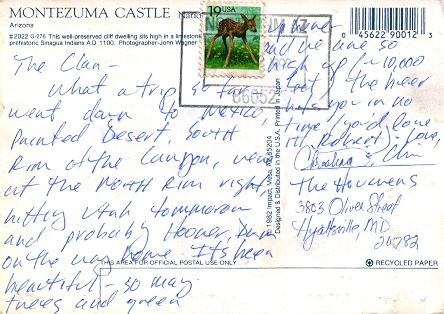 MONTEZUMA CASTLE
Arizona
#2022 G-276 This well-preserved cliff dwelling sits high in a limestone
prehistoric Sinagua Indians A.D. 1100. Photographer-John Wagner
The Clan -
What a trip so far
went down to Mexico
Painted Desert South
Rim of the Canyon, were
at the North Rim right,
hitting Utah tomorrow
and probably Hoover Dam
on the way home. It's been
beautiful - so many
trees and green
up here
and we are so
high up /~10,000
feet
you in no
time (you'd love
it Robert) Love,
Christina & Chris
19 USA
86052
© 1982 Impact, Mesa, Az 85204
Designed & Distributed in the U.S.A. Printed in Japan
0 45622 90012 3
The Houvens
3803 Oliver Street
Hyattsville, MD
20782
THIS AREA FOR OFFICIAL POSTAL USE ONLY
RECYCLED PAPER